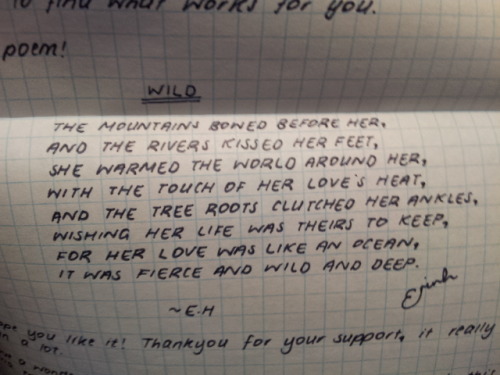 to find what works for you.
poem!
WILD
THE MOUNTAINS BOWED BEFORE HER,
AND THE RIVERS KISSED HER FEET,
SHE WARMED THE WORLD AROUND HER,
WITH THE TOUCH OF HER LOVE'S HEAT,
AND THE TREE ROOTS CLUTCHED HER ANKLES,
WISHING HER LIFE WAS THEIRS TO KEEP,
FOR HER LOVE WAS LIKE AN OCEAN,
IT WAS FIERCE AND WILD AND DEEP.
~E.H
you like it! Thankyou for your support, it really
a lot.